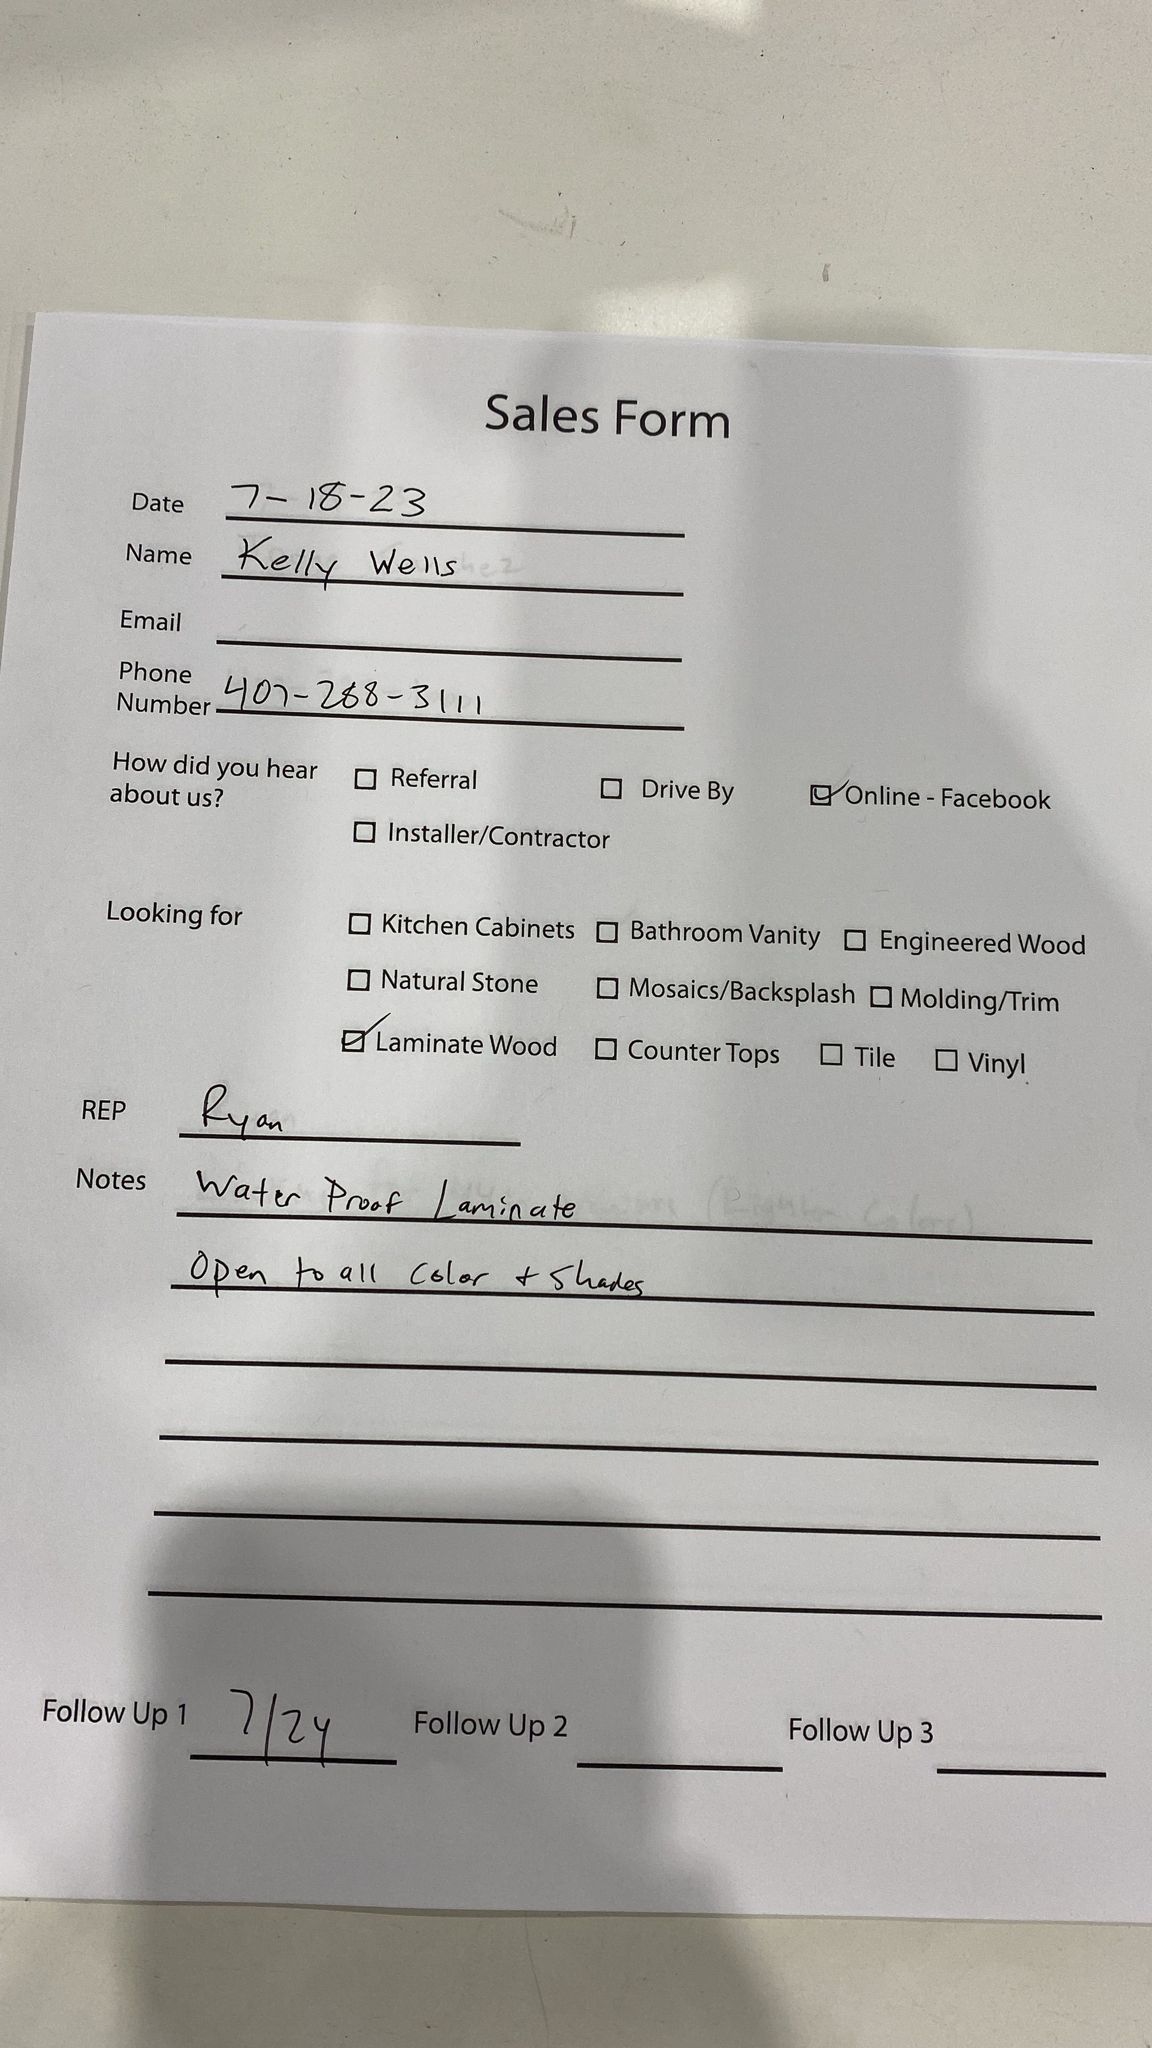 Sales Form
Date 7-18-23
Name Kelly Wells
Email
Phone
Number 407-288-3111
How did you hear
about us?
☐ Referral ☐ Drive By ☑ Online - Facebook
☐ Installer/Contractor
Looking for ☐ Kitchen Cabinets ☐ Bathroom Vanity ☐ Engineered Wood
☐ Natural Stone ☐ Mosaics/Backsplash ☐ Molding/Trim
☑ Laminate Wood ☐ Counter Tops ☐ Tile ☐ Vinyl
REP Ryan
Notes Water Proof Laminate
Open to all Color + Shades
Follow Up 1 7/24 Follow Up 2 Follow Up 3